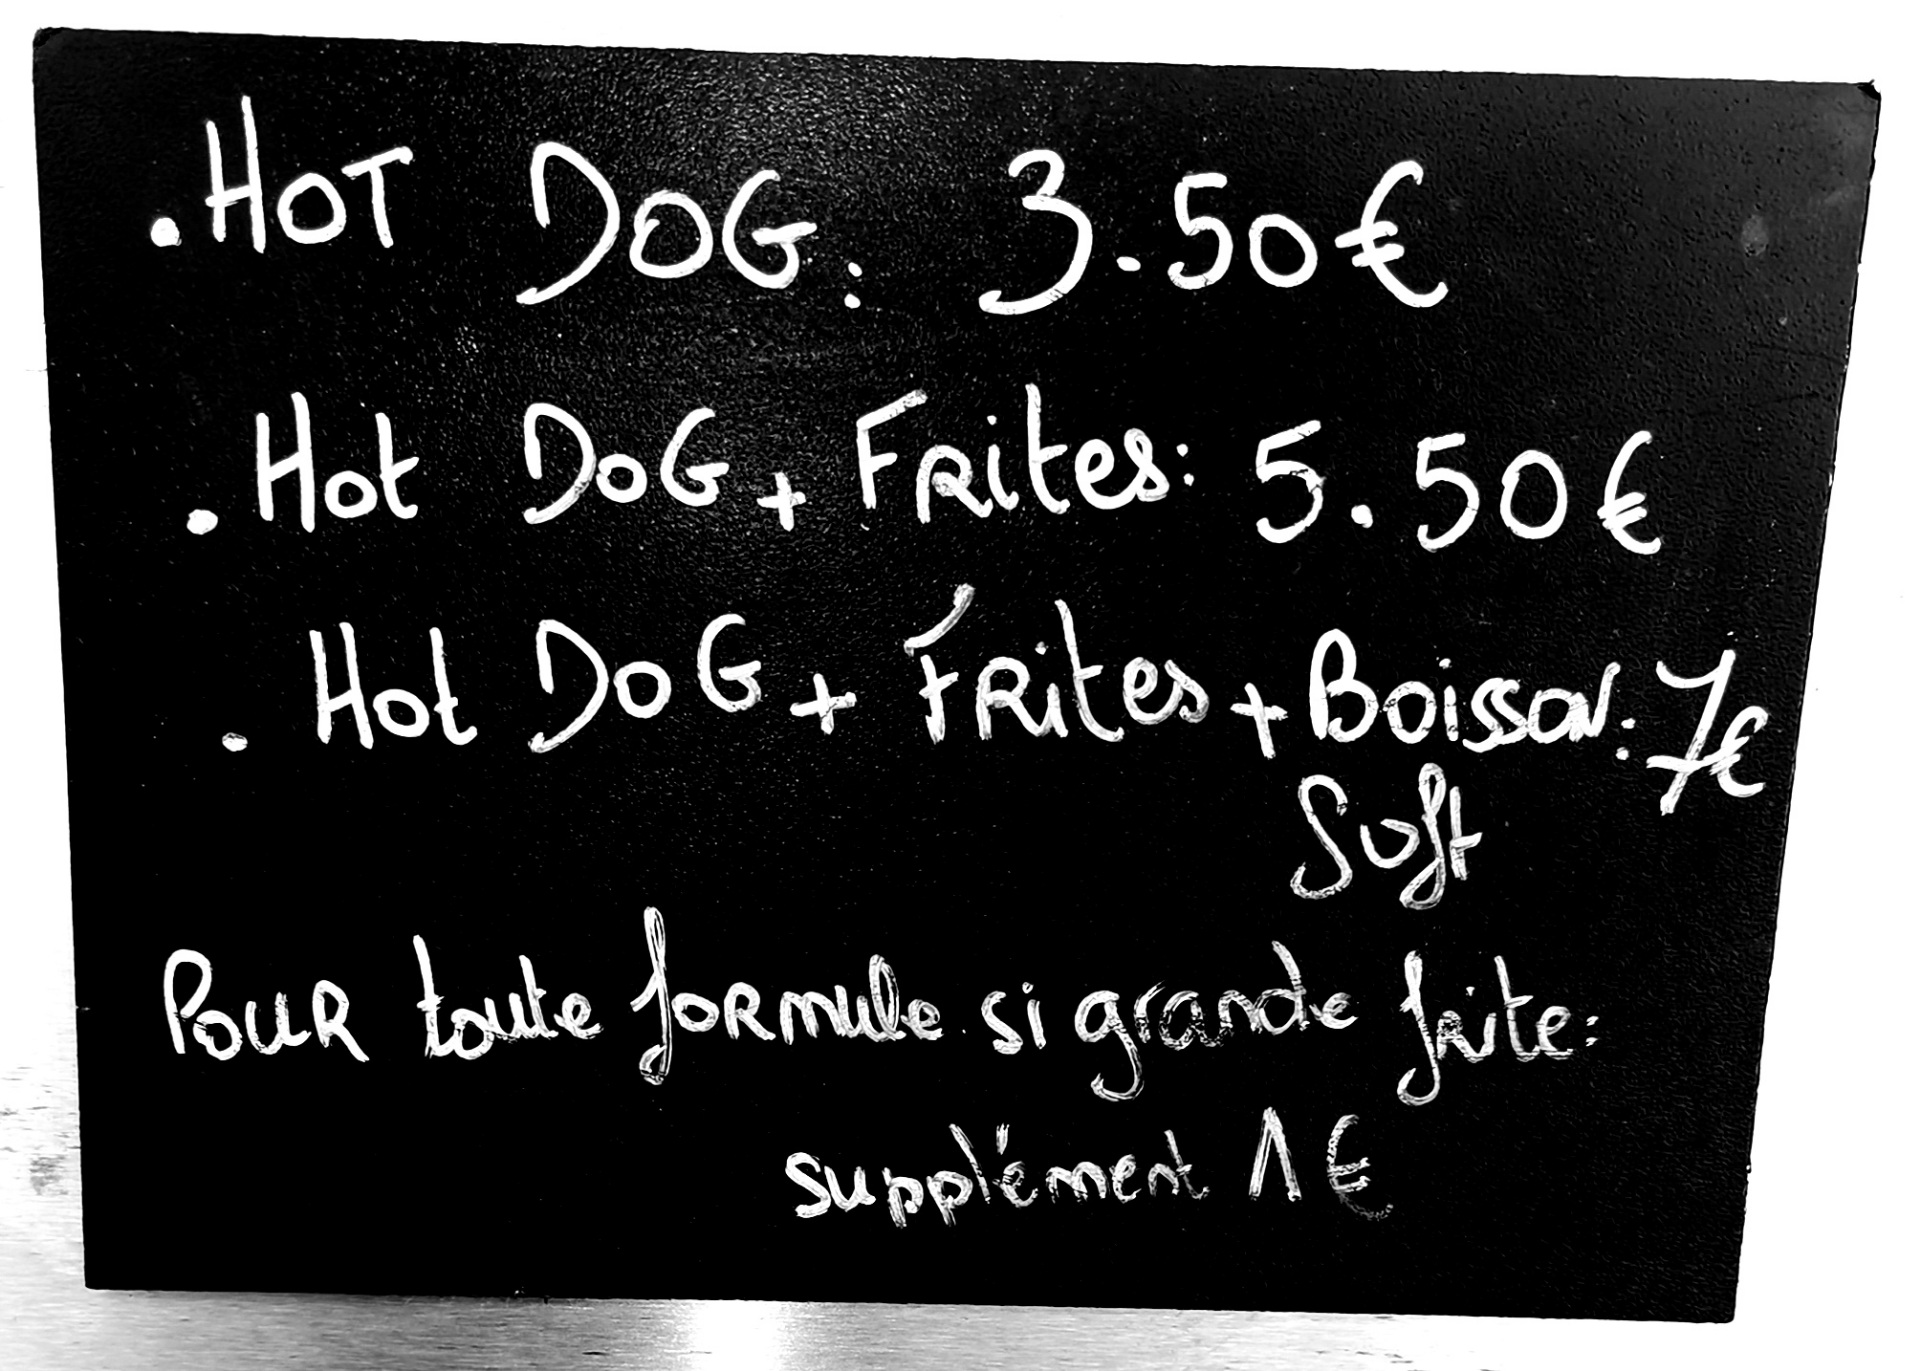 .HOT DOG: 3.50€
. Hot DOG + FRites: 5.50€
. Hot DOG + FRites + Boisson: 7€
Soft
POUR toute foRmule si grande frite:
supplément 1€